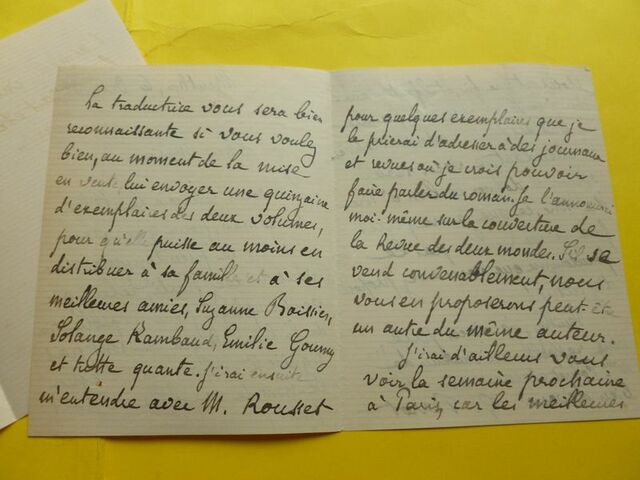 La traductrice vous sera bien
reconnaissante si vous voulez
bien, au moment de la mise
en vente lui envoyer une quinzaine
d'exemplaires des deux volumes,
pour qu'elle puisse au moins en
distribuer à sa famille et à ses
meilleures amies, Suzanne Boissier,
Solange Rambaud, Emilie
et quante. J'irai ensuite
m'entendre avec M. Rousset
pour quelques exemplaires que je
le prierai d'adresser à des journaux
et revues où je crois pouvoir
faire parler du roman. Je l'annoncerai
moi-même sur la couverture de
la Revue des deux mondes. S'il se
vend convenablement, nous
vous en proposerons peut-êt
un autre du même auteur.
J'irai d'ailleurs vous
voir la semaine prochaine
à Paris, car les meilleures